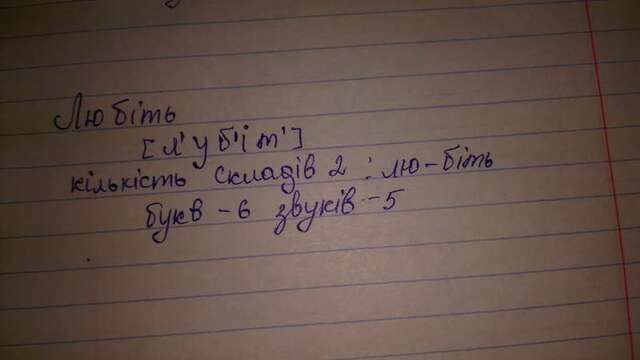 Любіть
[л'уб'іт']
кількість складів 2 : лю-біть
букв - 6 звуків - 5